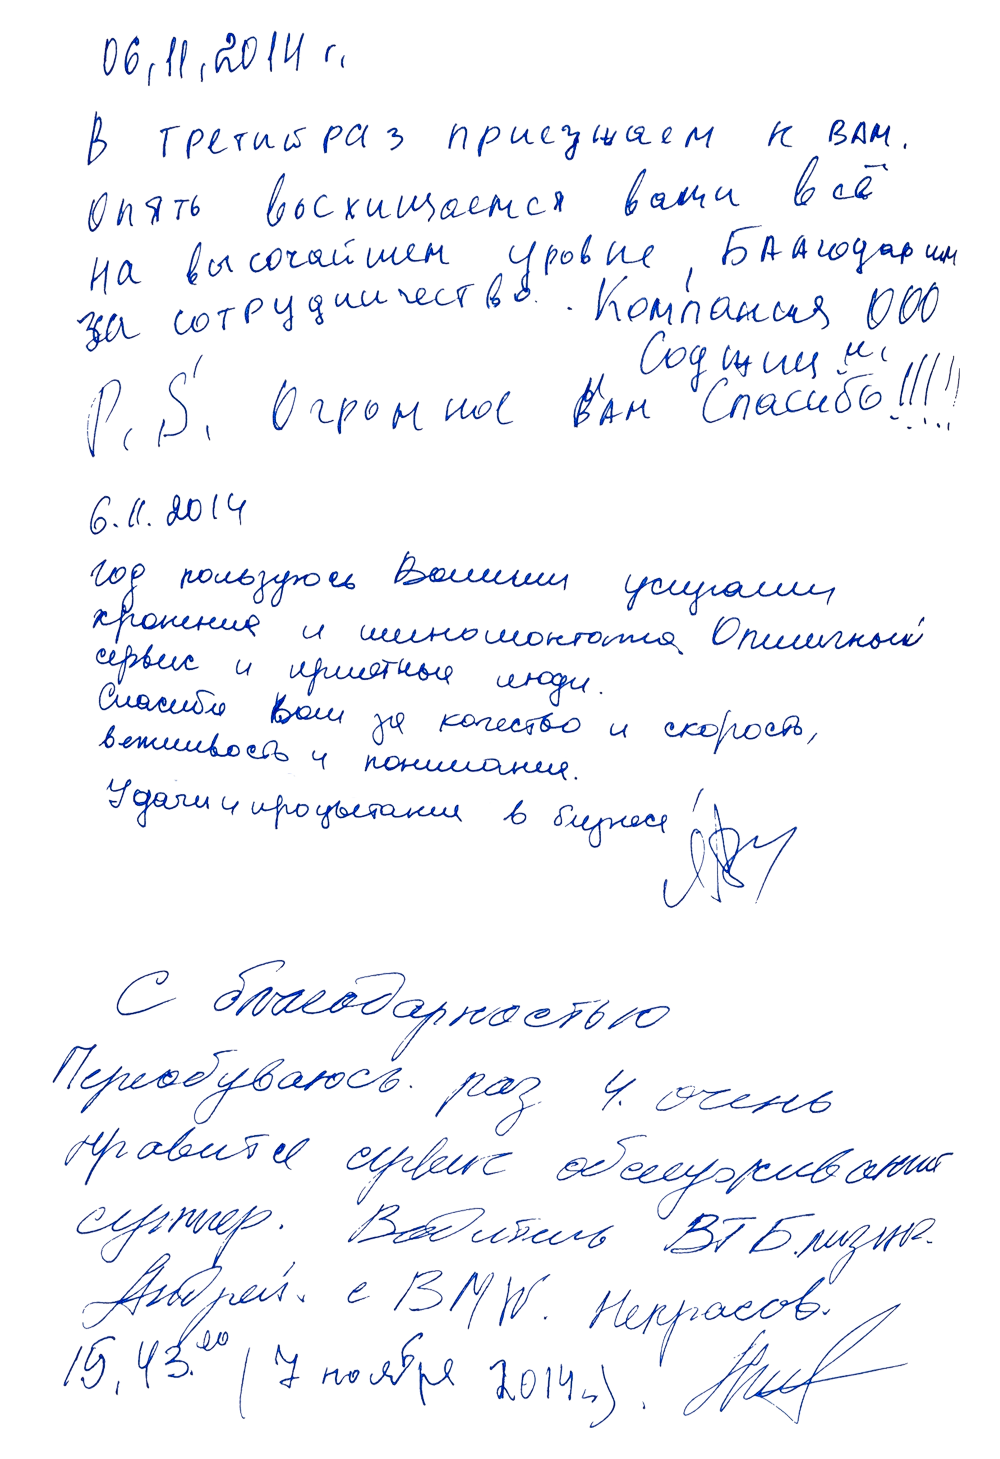 06.11.2014 г.
В третий раз приезжаем к ВАМ.
Опять восхищаемся вами всё
на высочайшем уровне, Благодарим
за сотрудничество. Компания ООО
P.S. Огромное ВАМ Спасибо!!!!!
6.11.2014
Год пользуюсь Вашими услугами
хранения и шиномонтажа, Отличный
сервис и приятные люди.
Спасибо Вам за качество и скорость,
вежливость и понимание.
Удачи и процветания в бизнесе!
С благодарностью
Переобуваюсь. раз 4. очень
нравится сервис обслуживания
супер. Водитель ВТБ.лизинг.
Андрей. с BMW. Некрасов.
15,43.00 (7 ноября 2014г.).